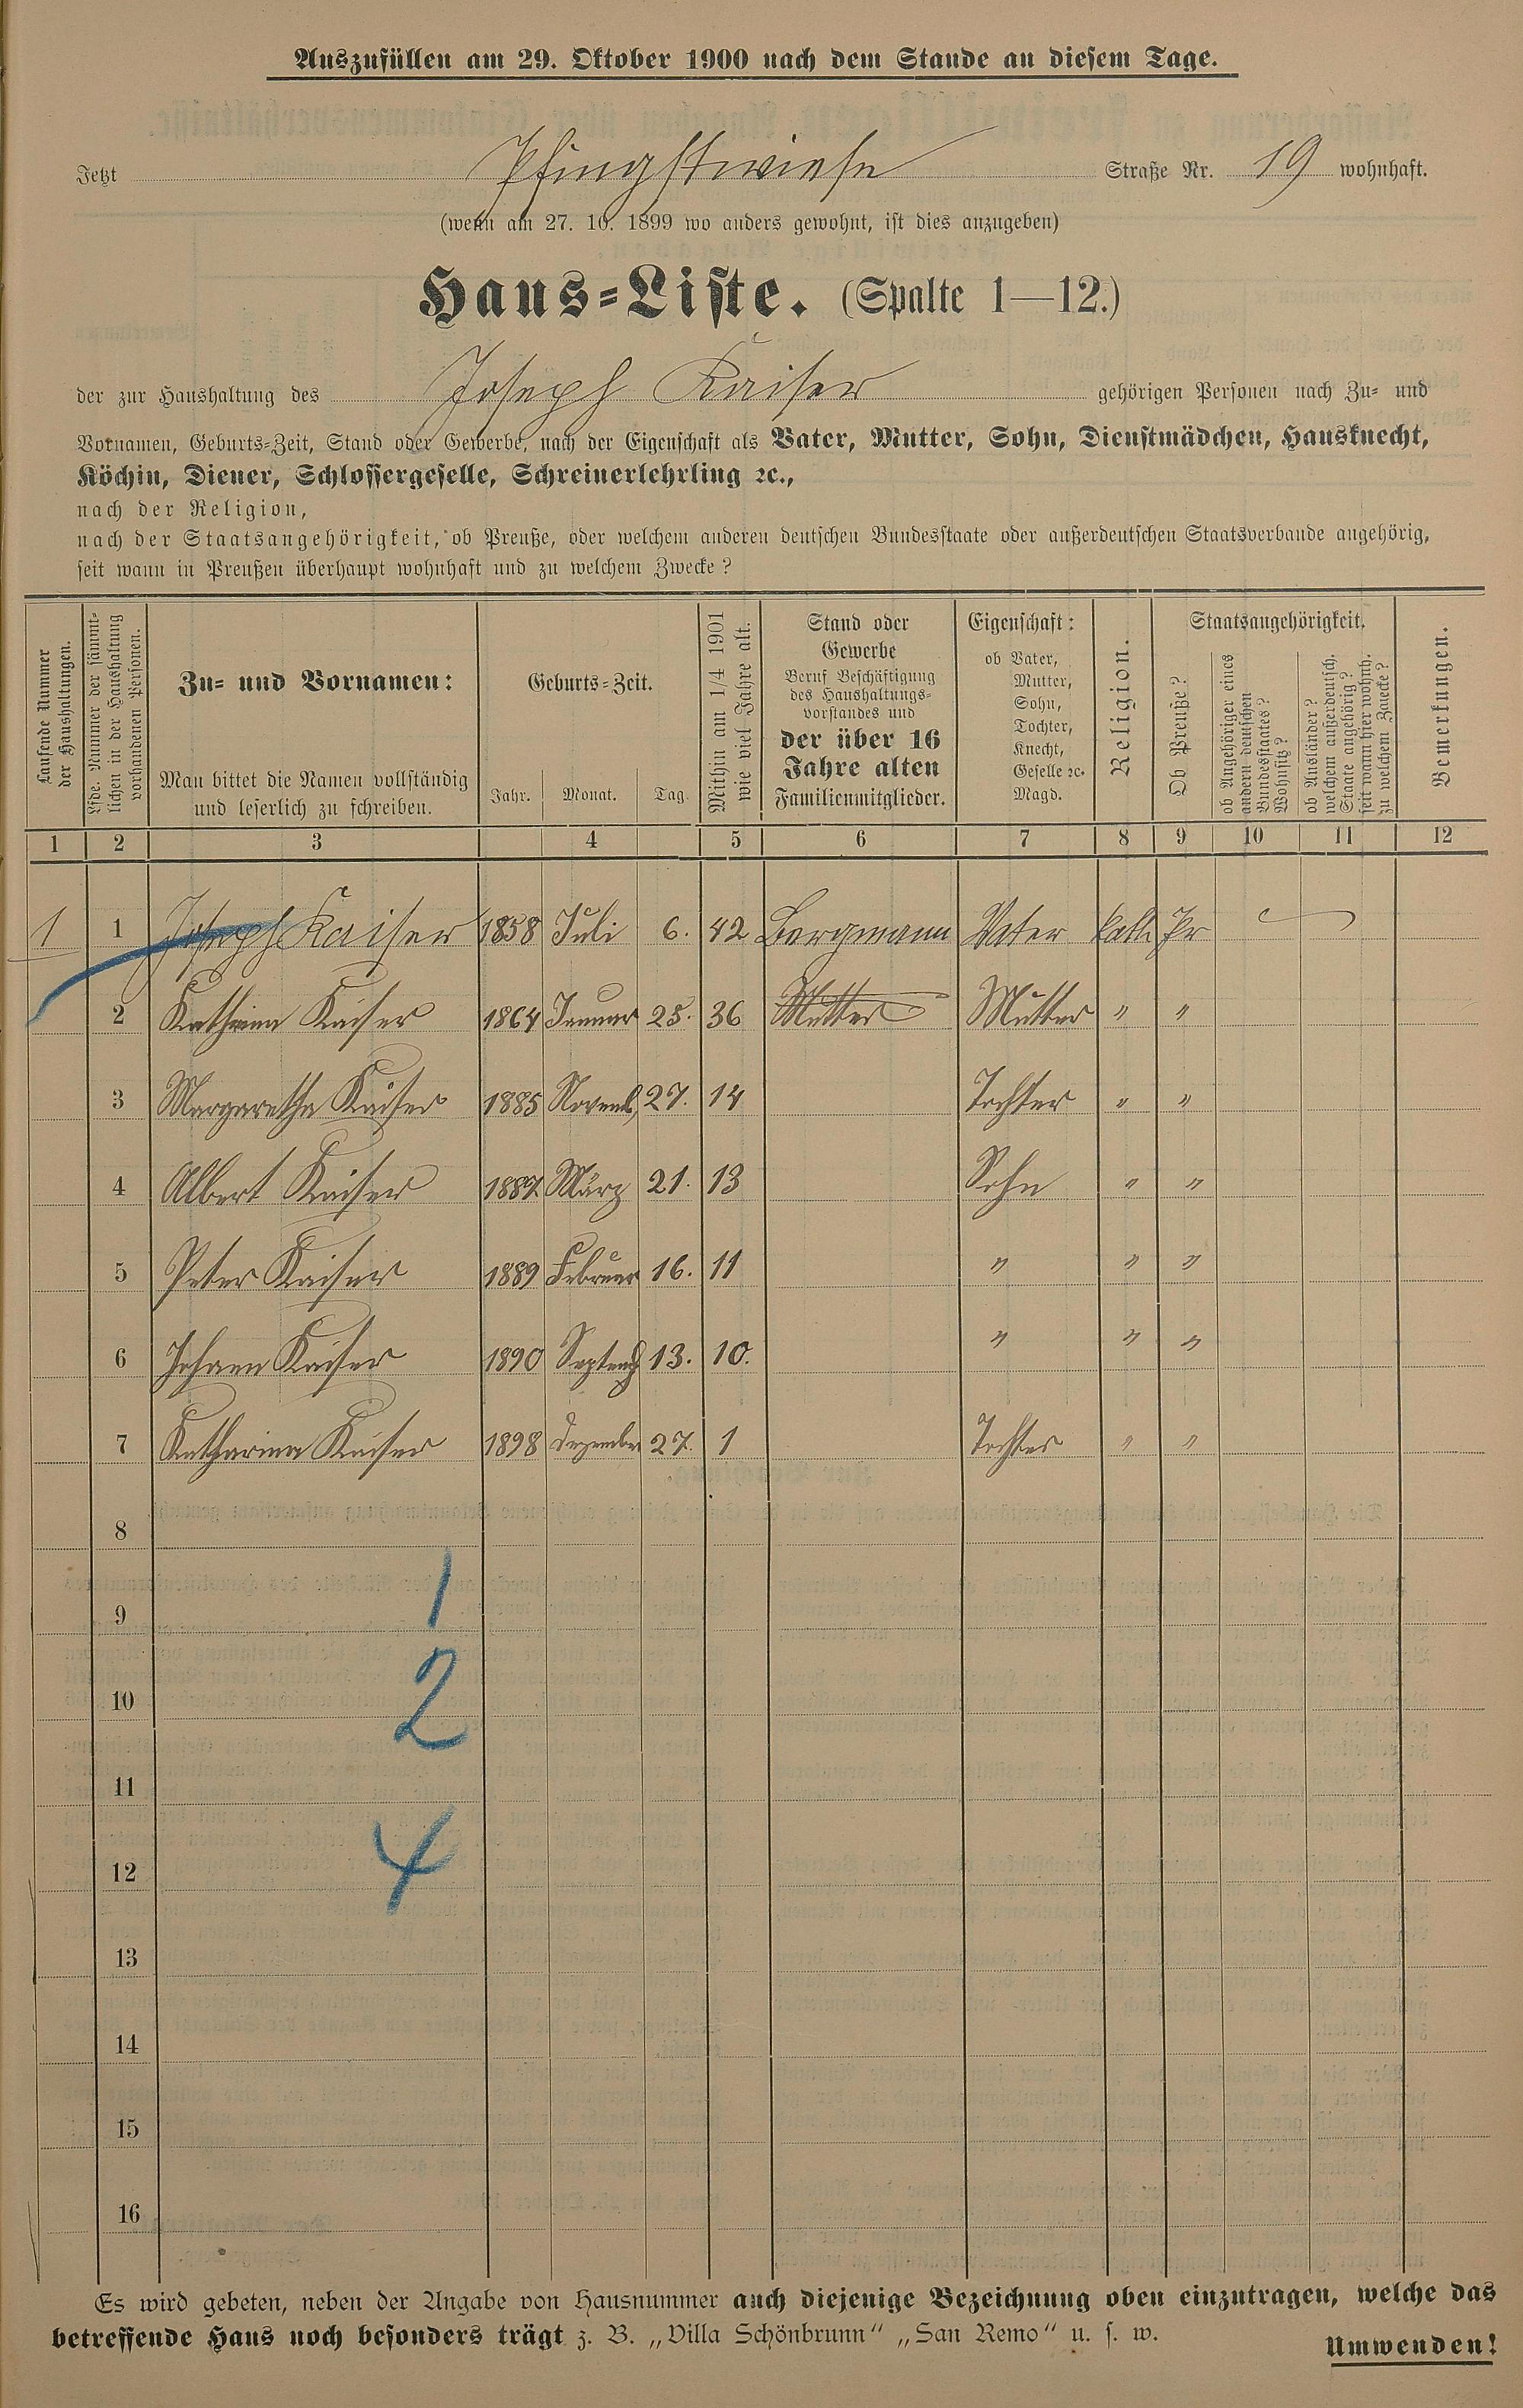 Auszufüllen am 29. Oktober 1900 nach dem Stande an diesem Tage.
Jetzt Pfingstwiese Straße Nr. 19 wohnhaft.
(wenn am 27. 10. 1899 wo anders gewohnt, ist dies anzugeben)
Haus-Liste. (Spalte 1—12.)
der zur Haushaltung des Joseph Kaiser gehörigen Personen nach Zu- und
Vornamen, Geburts-Zeit, Stand oder Gewerbe, nach der Eigenschaft als Vater, Mutter, Sohn, Dienstmädchen, Hausknecht,
Köchin, Diener, Schlossergeselle, Schreinerlehrling ꝛc.,
nach der Religion,
nach der Staatsangehörigkeit, ob Preuße, oder welchem anderen deutschen Bundesstaate oder außerdeutschen Staatsverbande angehörig,
seit wann in Preußen überhaupt wohnhaft und zu welchem Zwecke?
Laufende Nummer
der Haushaltungen.
Lfde. Nummer der sämmt-
lichen in der Haushaltung
vorhandenen Personen.
Zu- und Vornamen:
Man bittet die Namen vollständig
und leserlich zu schreiben.
Geburts-Zeit.
Jahr. Monat. Tag.
Mithin am 1/4 1901
wie viel Jahre alt.
Stand oder
Gewerbe
Beruf Beschäftigung
des Haushaltungs-
vorstandes und
der über 16
Jahre alten
Familienmitglieder.
Eigenschaft:
ob Vater,
Mutter,
Sohn,
Tochter,
Knecht,
Geselle ꝛc.
Magd.
Religion.
Staatsangehörigkeit.
Ob Preuße?
ob Angehöriger eines
andern deutschen
Bundesstaates?
Wohnsitz?
ob Ausländer?
welchem außerdeutsch.
Staate angehörig?
seit wann hier wohnh.
zu welchem Zwecke?
Bemerkungen.
1 2 3 4 5 6 7 8 9 10 11 12
1 1 Joseph Kaiser 1858 Juli 6. 42 Bergmann Vater kath Pr
2 Kathrina Kaiser 1864 Januar 25. 36 Mutter Mutter " "
3 Margaretha Kaiser 1885 Novemb, 27. 14 Tochter " "
4 Albert Kaiser 1887 März 21. 13 Sohn " "
5 Peter Kaiser 1889 Februar 16. 11 " " "
6 Johann Kaiser 1890 Septemb 13. 10. " " "
7 Katharina Kaiser 1898 Dezember 27. 1 Tochter " "
8
9 1
10 2
11
12 4
13
14
15
16
Es wird gebeten, neben der Angabe von Hausnummer auch diejenige Bezeichnung oben einzutragen, welche das
betreffende Haus noch besonders trägt z. B. „Villa Schönbrunn“ „San Remo“ u. s. w.
Umwenden!